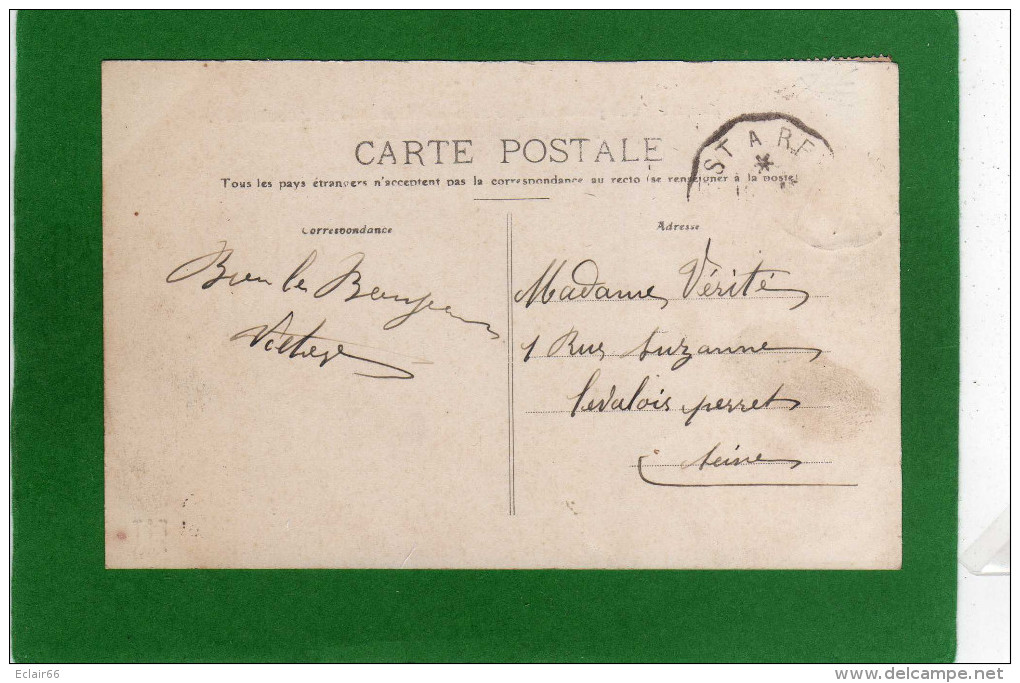 CARTE POSTALE
Tous les pays étrangers n'acceptent pas la correspondance au recto (se renseigner à la poste)
STARE
Correspondance
Adresse
Bien le Bonjour
Madame Vérité
1 Rue Suzanne
levalois perret
Seine
Eclair66
www.delcampe.net